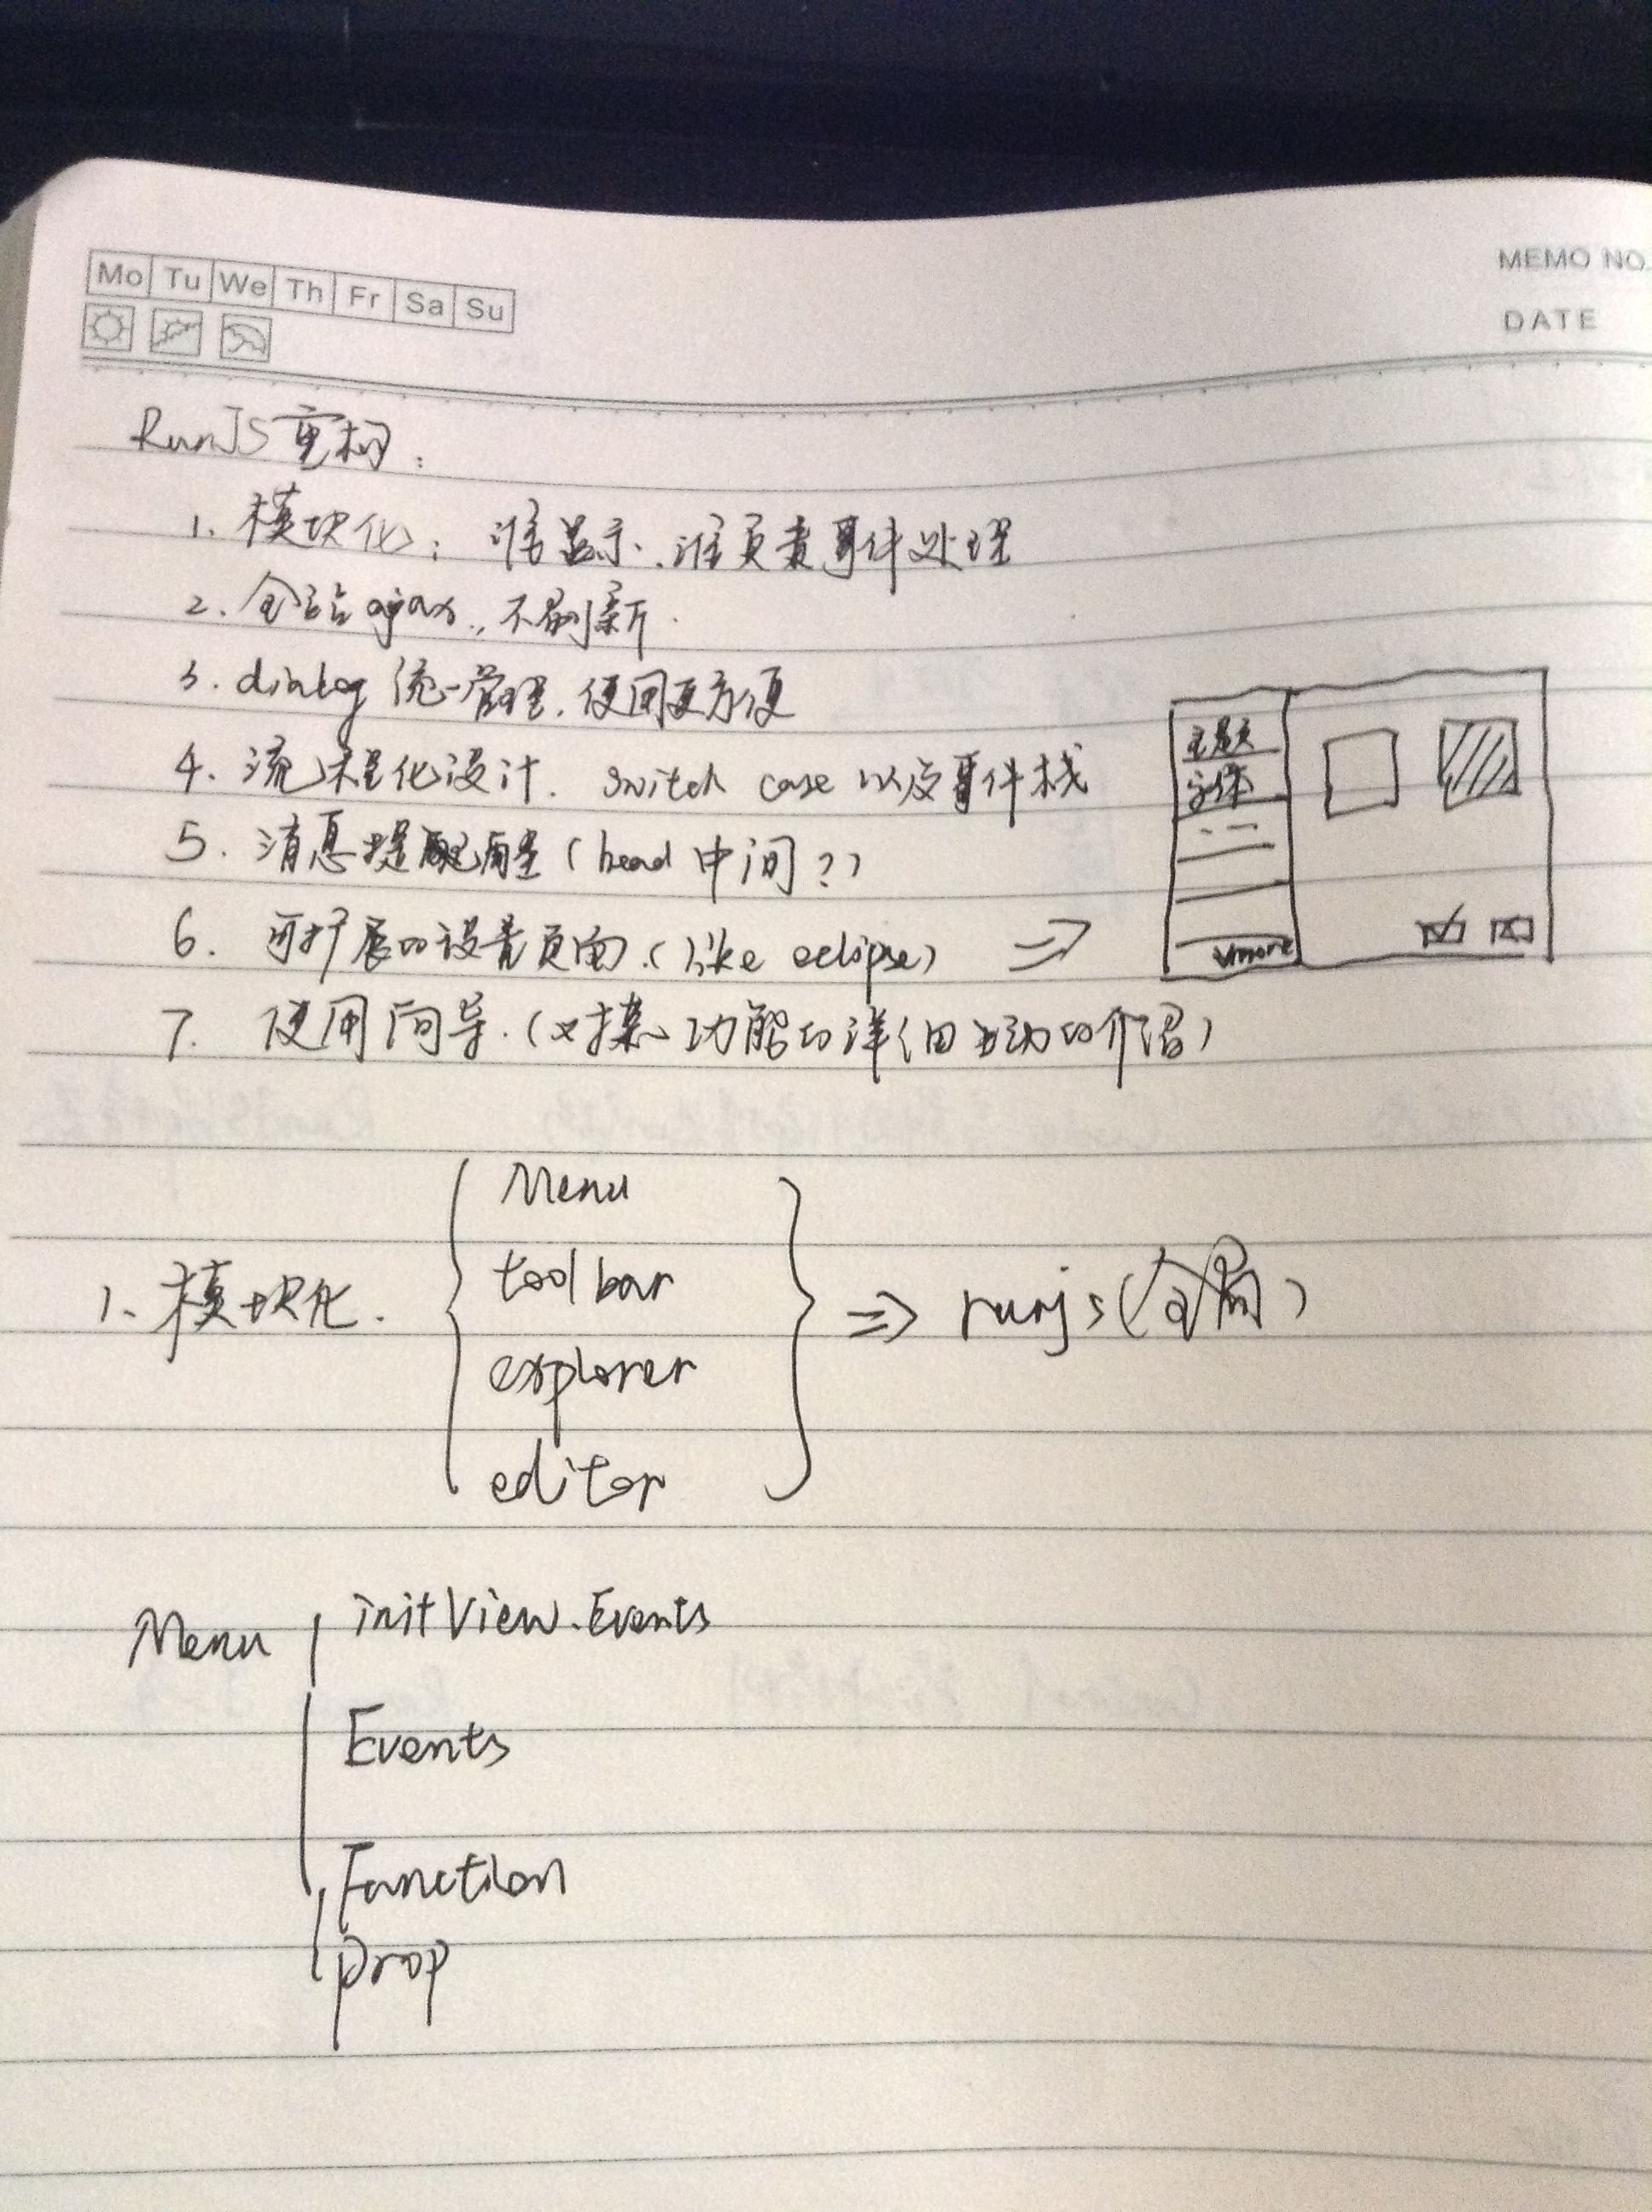 Mo Tu We Th Fr Sa Su
MEMO NO.
DATE
RunJS重构：
1. 模块化：谁显示、谁负责事件处理
2. 全站ajax，不刷新.
3. dialog 统一管理，使用更方便
4. 流程化设计. switch case 以及事件栈
5. 消息提醒（head 中间？）
6. 可扩展的设置页面.（like eclipse） =>
主题
字体
more
7. 使用向导.（对某功能的详细的介绍）
1. 模块化.
Menu
toolbar
explorer
editor
=> runjs（全局）
Menu
initView.Events
Events
Function
prop